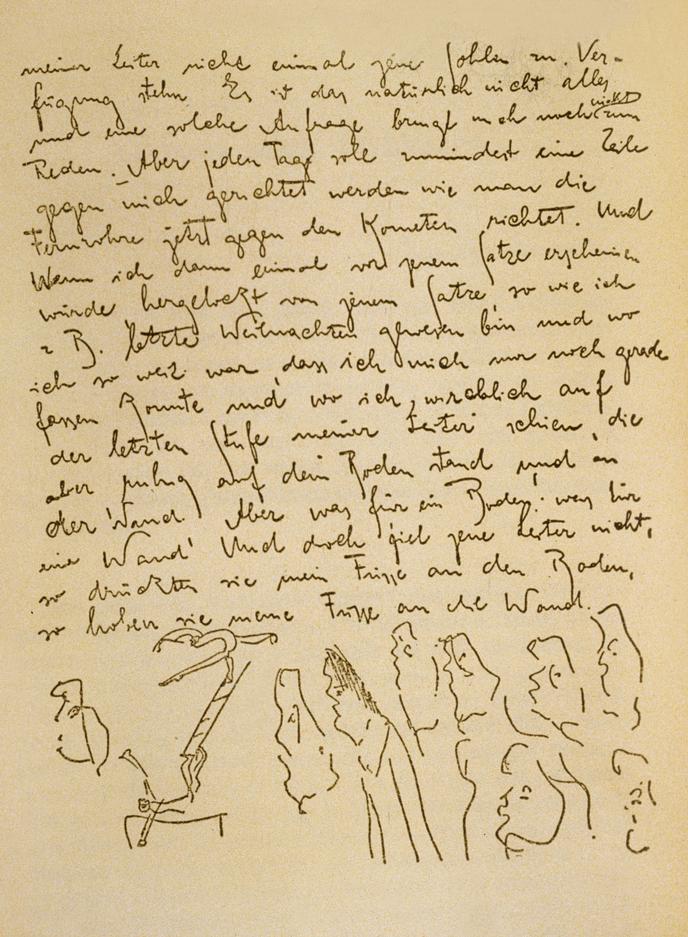 meiner Leiter nicht einmal jene Sohlen zu Ver-
fügung stehn. Es ist das natürlich nicht alles
und eine solche Anfrage bringt mich noch nicht zum
Reden. Aber jeden Tag soll zumindest eine Zeile
gegen mich gerichtet werden wie man die
Fernrohre jetzt gegen den Kometen richtet. Und
Wenn ich dann einmal vor jenem Satze erscheinen
würde hergelockt von jenem Satze, so wie ich
z B. letzte Weihnachten gewesen bin und wo
ich so weit war, dass ich mich nur noch gerade
fassen konnte und wo ich wirchlich auf
der letzten Stufe meiner Leiter schien, die
aber ruhig auf dem Boden stand und an
der Wand. Aber was für ein Boden! was für
eine Wand! Und doch fiel jene Leiter nicht,
so drückten sie meine Füsse an den Boden,
so hoben sie meine Füsse an die Wand.